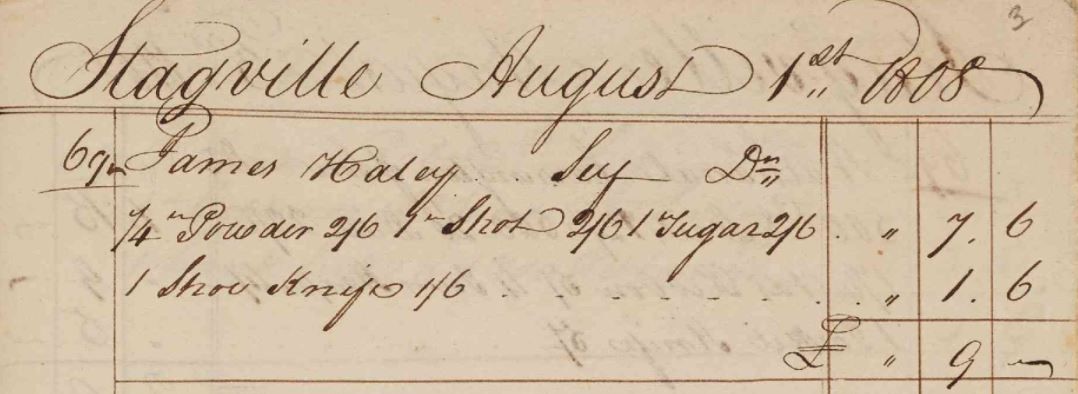 3
Stagville August 1st 1808
James Haley Dr
1/4 Powder 2/6 1 Shot 2/6 1 Sugar 2/6 . " 7. 6
1 Shoe Knife 1/6 . . . . . . . . . . " 1. 6
£ " 9 —